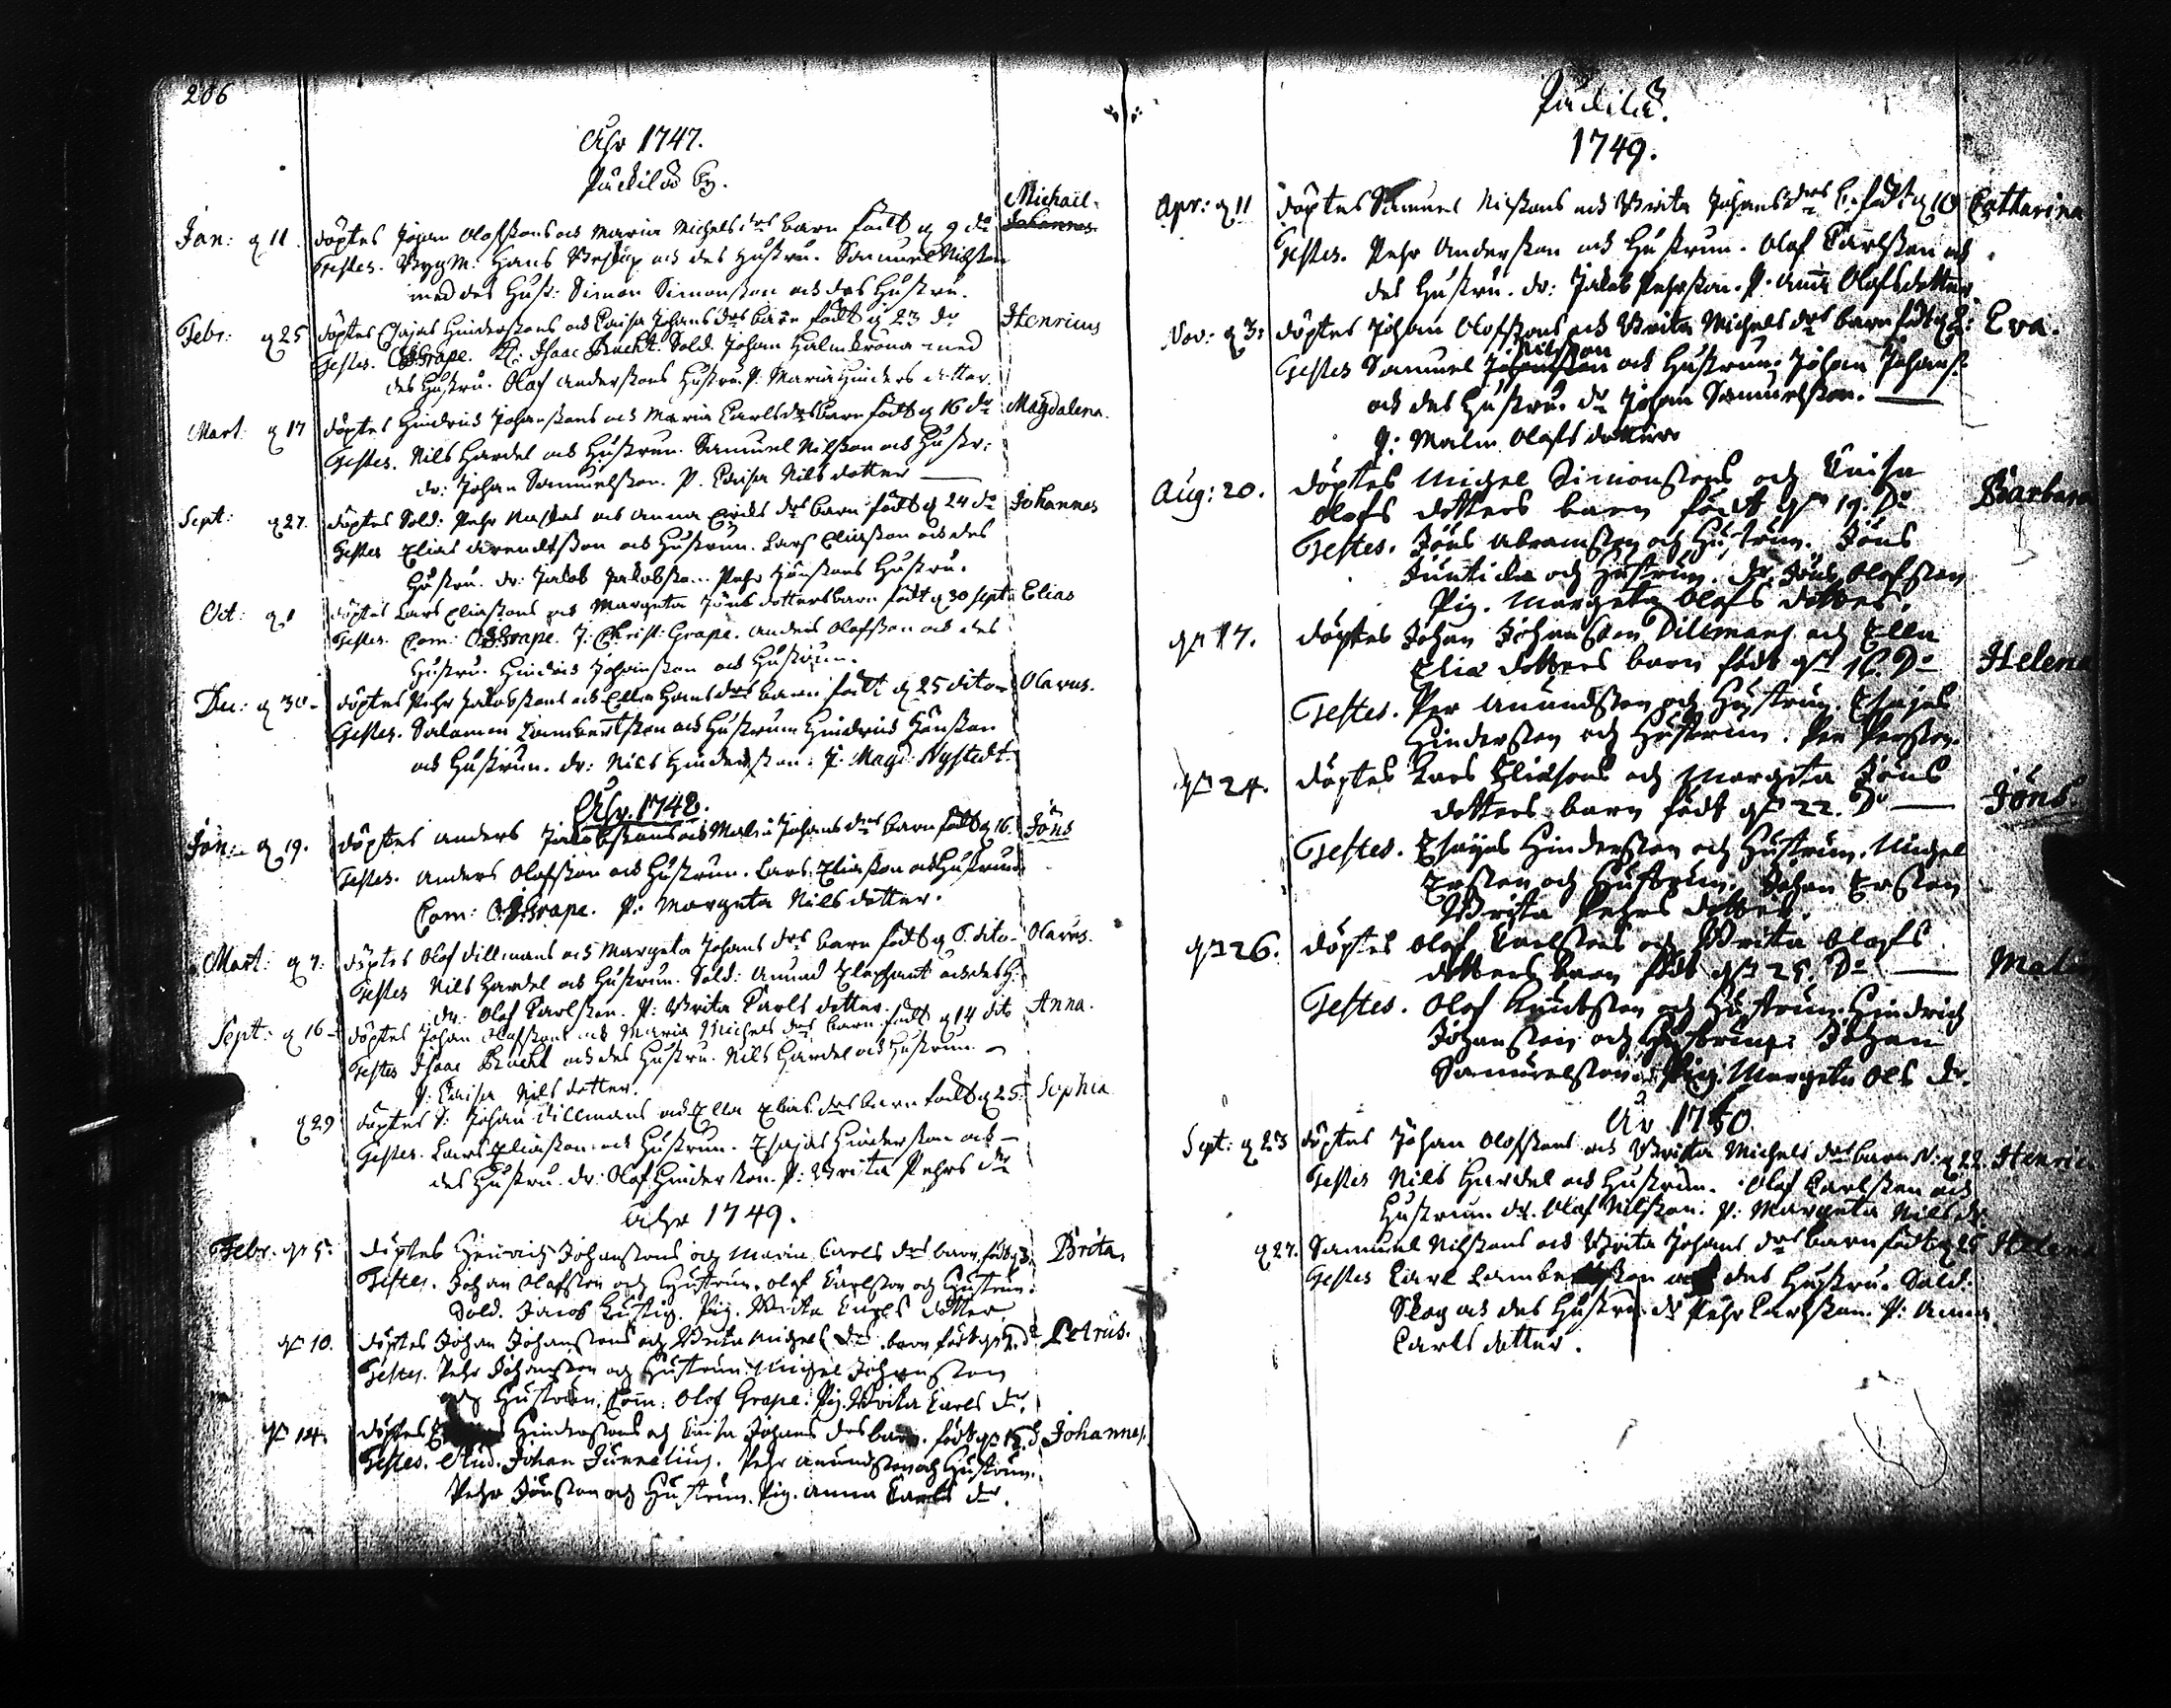 206
Åhr 1747.
Påckila by.
Michaël.
Jan: d 11. döptes Johan Olofssons och Maria Michels drs barn födt d 9 do Johannes
Testes. Bygm. Hans och des Hustru. Samuel Nilsson
med des Hust: Simon Simonsson och des Hustru.
Febr: d 25 döptes Esajas Hinderssons och Caisa Johans drs barn födt d 23 do Henricus
Testes. Grape. Kl: Isaac Brucht. Sold. Johan Halmkrona med
des Hustru. Olof Anderssons Hustru. P. Maria Hinders dotter.
Mart: d 17 döptes Hindrich Johanssons och Maria Carls drs barn födt d 16 do Magdalena.
Testes. Nils Hardel och Hustrun. Samuel Nilsson och Hustr:
dr: Johan Samuelsson. P. Caisa Nils dotter
Sept: d 27. döptes Sold: Pehr och Anna drs barn födt d 24 do Johannes
Testes Elias Arendtsson och Hustrun. Lars Eliasson och des
Hustru. dr: Jakob Jakobsson. Pehr Jönssons Hustru.
Oct: d 1 döptes Lars Eliassons och Margeta Jöns dotters barn födt d 30 sept: Elias
Testes. Com: Grape. J: Christ: Grape. Anders Olofsson och des
Hustru. Hindrich Johansson och Hustrun.
Dec: d 30 döptes Pehr Jakobssons och Ella Hans drs barn födt d 25 dito Olavus.
Testes. Salomon Lambertsson och Hustrun Hindrich Jönsson
och Hustrun. dr: Nils Hindersson: P: Magd: Nystedt.
Åhr 1748.
Jan: d 19. döptes Anders Jakobssons och Malin Johans drs barn födt d 16. Jöns
Testes. Anders Olofsson och Hustrun. Lars Eliasson och Hustrun
Com: Grape. P: Margeta Nils dotter.
Mart: d 7: döptes Olof Dillmans och Margeta Johans drs barn födt d dito Olavus.
Testes Nils Hardel och Hustrun. Sold: Amund Elephant och des H:
dr: Olof Carlsson. P: Brita Carls dotter.
Sept: d 16 döptes Johan Olofssons och Maria Michels drs barn födt d 14 dito Anna.
Testes Isaac Brucht och des Hustru. Nils Hardel och Hustrun
P: Caisa Nils dotter.
d 29 döptes S: Johan Dillmans och Ella Elias drs barn födt d 25: Sophia
Testes. Lars Eliasson och Hustrun. Esajas Hindersson och
des Hustru. dr: Olof Hindersson. P: Brita Pehrs dr
Åhr 1749.
Febr: d 5: döptes Henrich Johanssons och Maria Carls drs barn födt d 3. Brita.
Testes. Johan Olofsson och Hustrun. Olof Carlsson och Hustrun.
Sold. Jacob Lustig. Pig. Brita Carls dotter
d 10. döptes Johan Johanssons och Brita Michels drs barn födt d do Petrus.
Testes. Pehr Johansson och Hustrun Michel Johansson
och Hustrun. Com: Olof Grape. Pig. Brita Carls dr.
d 14. döptes Hinderssons och Caisa Johans drs barn. födt d Johannes.
Testes. Stud. Johan Junnelius. Pehr Amundsson och Hustrun.
Pehr Jönsson och Hustrun. Pig. Anna Carls dr.
Påckila.
1749.
Apr: d 11 döptes Samuel Nilssons och Brita Johans drs b. födt d 10 Catharina
Testes. Pehr Andersson och Hustrun. Olof Carlsson och
des Hustru. dr: Jakob Pehrsson. P. Anna Olofsdotter
Nov: d 3: döptes Johan Olofssons och Brita Michels drs barn födt d Eva.
Nilsson
Testes Samuel Johansson och Hustrun: Johan Johans:
och des Hustru. dr Johan Samuelsson.
P: Malin Olofs dotter
Aug: 20. döptes Michel Simonssons och Caisa
Olofs dotters barn födt d 19. Do Barbara
Testes. Jöns Abramsson och Hustrun. Jöns
Juntila och Hustrun. dr. Jöns Olofsson
Pig. Margeta Olofs dotter.
d 17. döptes Johan Johansson Dillmans och Ella
Eliæ dotters barn födt d 16. Do Helena
Testes. Per Amundsson och Hustrun. Esajas
Hindersson och Hustrun. Per Persson.
d 24. döptes Lars Eliasons och Margeta Jöns
dotters barn födt d 22. Do Jöns.
Testes. Esajas Hindersson och Hustrun. Michel
Ersson och Hustrun. Johan Ersson
Brita Pehrs dotter.
d 26. döptes Olof Carlssons och Brita Olofs
dotters barn födt d 25. Do Malin
Testes. Olof Knutsson och Hustrun Hindrich
Johansson och Hustrun: Johan
Samuelsson Pig. Margeta Ols dr.
År 1750.
Sept: d 23 döptes Johan Olofssons och Brita Michels drs barn N: d 22. Henric
Testes Nils Hardel och Hustrun. Olof Carlsson och
Hustrun dr. Olof Nilsson. P: Margeta Nils dr.
d 27. Samuel Nilssons och Brita Johans drs barn födt d 25 Helena
Testes Carl Lambertsson och des Hustru. Sold:
Skog och des Hustru dr Pehr Carlsson. P: Anna
Carls dotter.